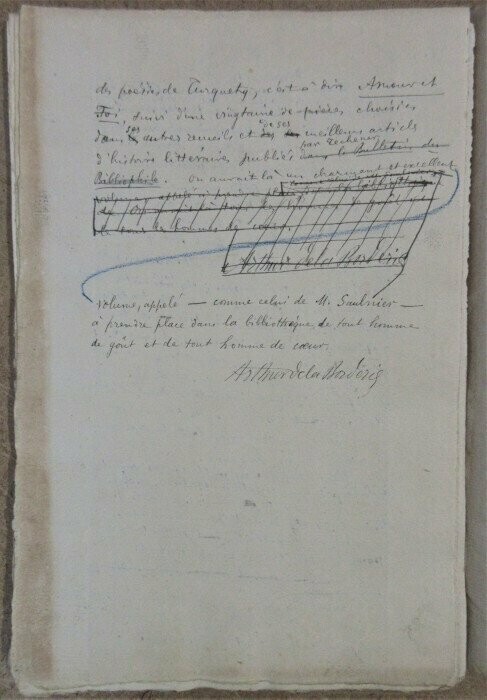 des poésies de Turquety, c'est à dire Amour et
Foi, suivi d'une vingtaine de pièces, choisies
dans ses autres recueils et de ses meilleurs articles
d'histoire littéraire, publiés par Techener dans le Bulletin du
Bibliophile. On aurait là un charmant et excellent
volume appelé à première place
de tous les hommes de cœur.
Arthur de la Borderie
volume, appelé — comme celui de M. Saulnier —
à première place dans la bibliothèque de tout homme
de goût et de tout homme de cœur.
Arthur de la Borderie